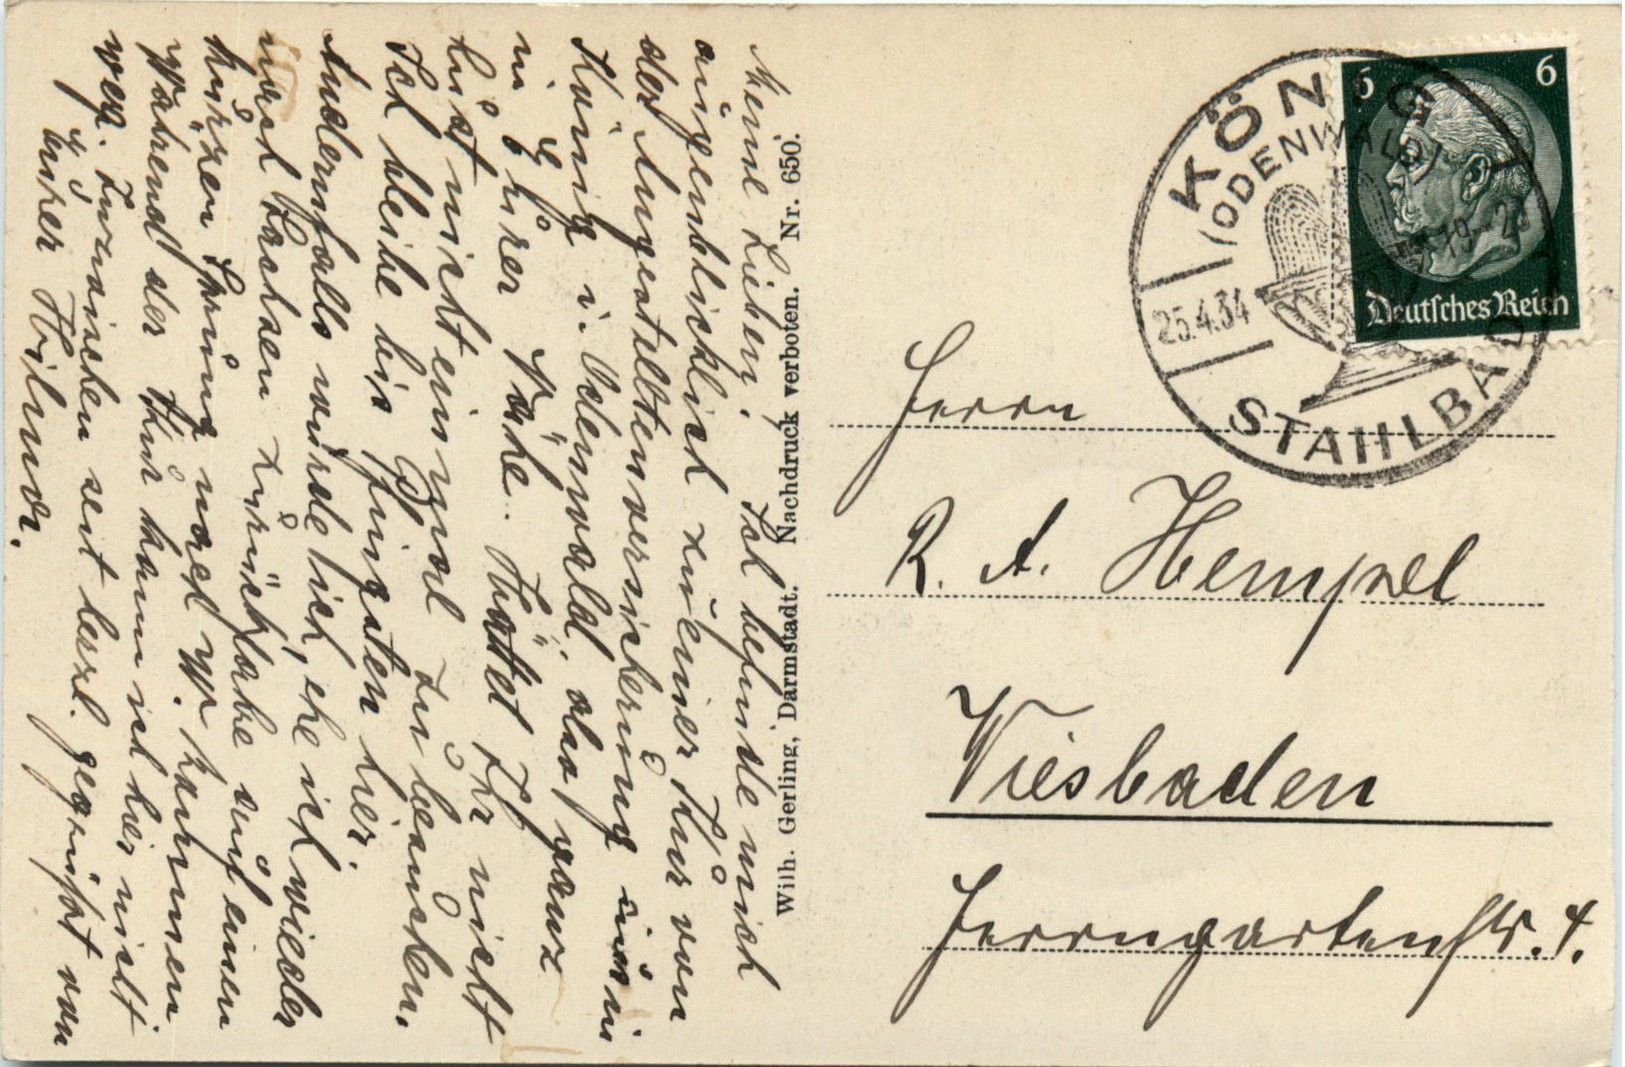 Meine Lieben! Ich befinde mich
augenblicklich zu einer Kur von
der Angestelltenversicherung aus in
König i. Odenwald, also ganz
in Eurer Nähe. Hättet Ihr nicht
Lust mich einmal zu besuchen.
Ich bleibe bis Pfingsten hier.
Andernfalls würde ich, ehe ich wieder
nach Sachsen zurückfahre auf einen
kurzen Sprung nach W. kommen
Während der Kur kann ich hier nicht
weg. Inzwischen seit herzl. gegrüßt von
Eurer Hilmar.
Wilh. Gerling, Darmstadt. Nachdruck verboten. Nr. 650.
6 6
Deutsches Reich
KÖNIG
(ODENWALD)
25.4.34
STAHLBAD
Herrn
R. A. Hempel
Wiesbaden
Herrngartenstr. 4.